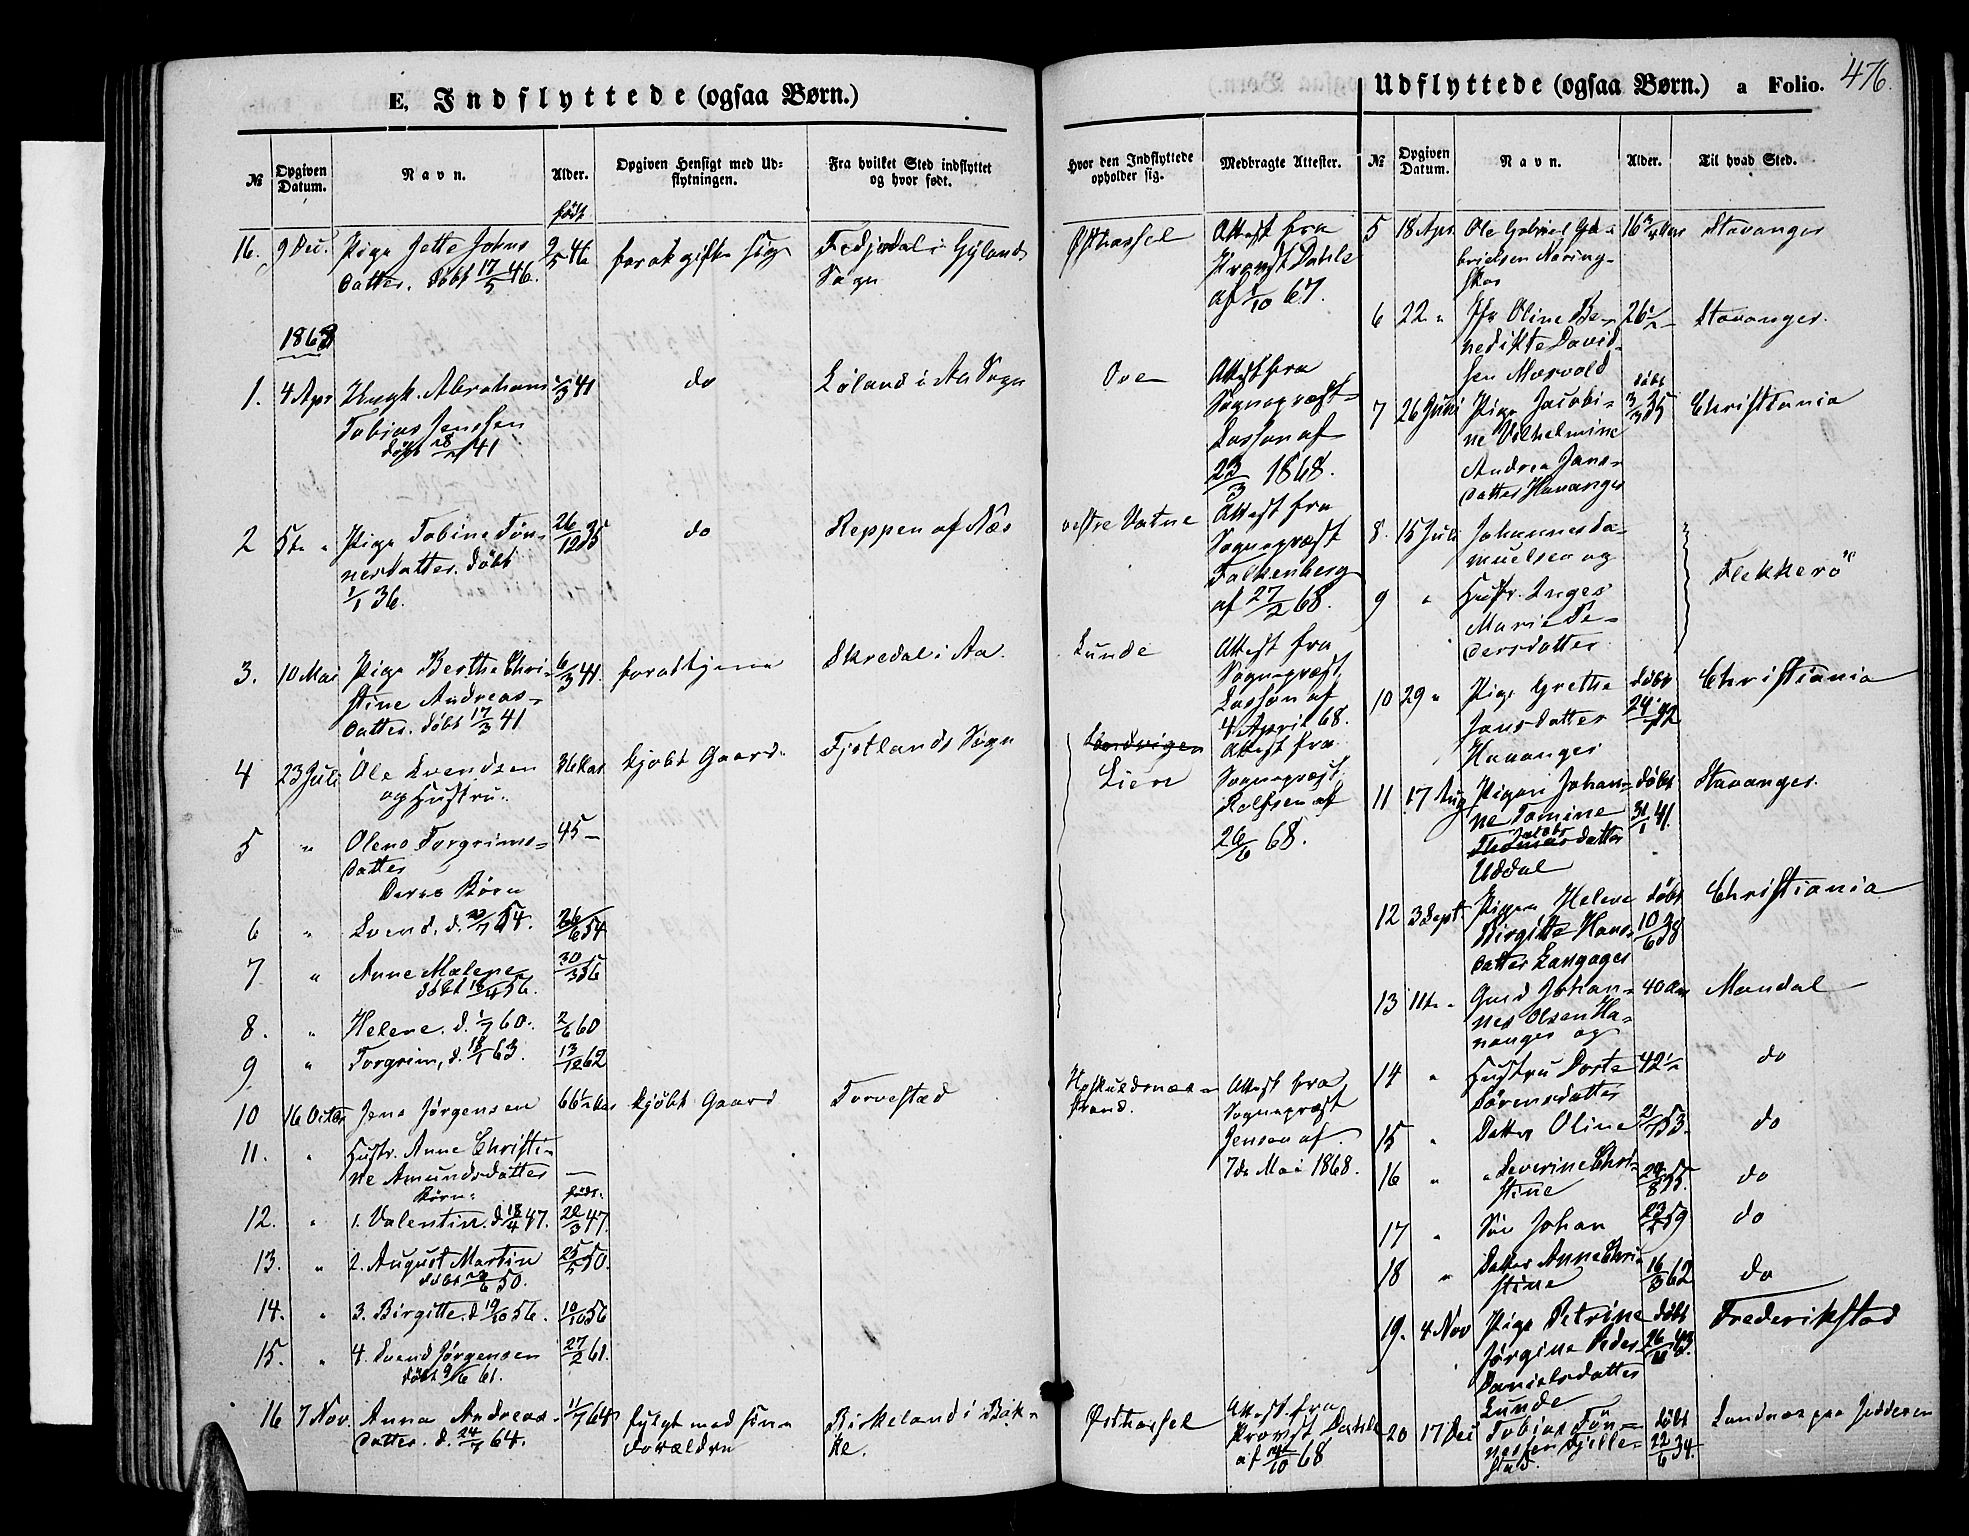 E, Indflyttede (ogsaa Børn.)
№ Opgiven Datum. Navn. Alder. Opgiven Hensigt med Udflytningen. Fra hvilket Sted indflyttet og hvor født.
født
16. 9 Dec. Pige Jette Johns 9/5 46 for at gifte sig i Gylands
datter. døbt 17/5 46. Sogn
1868
1. 4 Apr Ungk. Abraham /3 41 do Løland i Aa Sogn
Tobias Jensen
døbt 41
2 5te " Pige Tobine Tøn- 26/12 35 do Reppen af Næs
nesdatter. døbt
1/1 36.
3. 10 Mai Pige Berthe Chri- 6/3 41 for at tjene Skredal i Aa.
stine Andreas-
datter. døbt 17/3 41
4 23 Juli Ole Svendsen 36 Aar kjøbt Gaard. Fjotlands Sogn
og Hustru.
5 " Olene Torgrims- 45 –
datter
Deres Børn
6 " Svend, d. /7 54. 26/6 54
7. " Anne Malene 30/3 56
døbt 18/4 56.
8. " Helene. d. 1/7 60. 2/6 60
9 " Torgrim, d. 18/1 63. 13/12 62
10 16 Octbr Jens Jørgensen 66 Aar kjøbt Gaard Torvestad
11. " Hustr. Anne Christi-
ne Amundsdatter —
Børn: født.
12. " 1. Valentin. d 18/4 47. 22/3 47.
13. " 2. August Martin 25/5 50.
døbt /6 50.
14. " 3. Birgitte. d 19/10 56. 10/10 56
15. " 4. Svend Jørgensen 27/2 61.
døbt 9/6 61.
16 7 Nov. Anna Andreas 1/7 64 fulgt med sine Birkeland i Bak-
datter. d. 24/7 64. Forældre ke.
Udflyttede (ogsaa Børn.) a Folio. 476.
Hvor den Indflyttede opholder sig. Medbragte Attester. № Opgiven Datum. Navn. Alder. Til hvad Sted.
Østhassel Attest fra 5 18 Apr. Ole Gabriel Ga- 16 3/4 Aar Stavanger
Provst Dahle brielsen Næring-
af /10 67.
6 22 " Jfr Oline Be- 26 – Stavanger.
nedikte David-
Ore Attest fra sen Mosvold
Sognepræst døbt
Lassen af 7 26 Juni Pige Jacobi- 3/3 35 Christiania
23/3 1868. ne Vilhelmine
Andrea Jans-
datter Hananger
vestre Vatne Attest fra 8. 15 Juli Johannes Sa-
Sognepræst muelsen og
Falkenberg Flekkerö
af 27/2 68. 9 " Hustr. Inger
Marie Pe-
dersdatter
Lunde Attest fra
Sognepræst 10 29 " Pige Grethe døbt Christiania
Lassen af Jansdatter 24/ 42
4 April 68. Hananger
Sandvigen Attest fra
Lien Sognepræst 11 17 Aug Pigen Johan- døbt Stavanger.
Rolfsen af ne Tomine 31/1 41.
26/6 68. Jacobs
Thomasdatter
Uddal
12 3 Sept. Pigen Helene døbt Christiania
Birgitte Hans- 10/6 38
datter Langager
13 11te " Gmd Johan- 40 Aar Mandal
nes Olsen Ha-
nanger og
Attest fra 14 " Hustru Dorte 42 do
Strand. Sognepræst Sørensdatter
Jensen af 15 " Datter Oline 21/ 53. do
7de Mai 1868. 16 " " Severine Chri- /8 55. do
stine
17 " Søn Johan 23/ 59 do
18 " Datter Anne Chri- 16/3 62 do
stine
19. 4 Nov Pige Petrine døbt Frederikstad
Jørgine Peder 26/ 43.
Danielsdatter
Lunde
Østhassel Attest fra
Provst Dahle 20 17 Dec Tobias Tøn- døbt Sandnæs paa Jedderen
af /10 68 nessen Fjelle- 22/6 34.
stad.